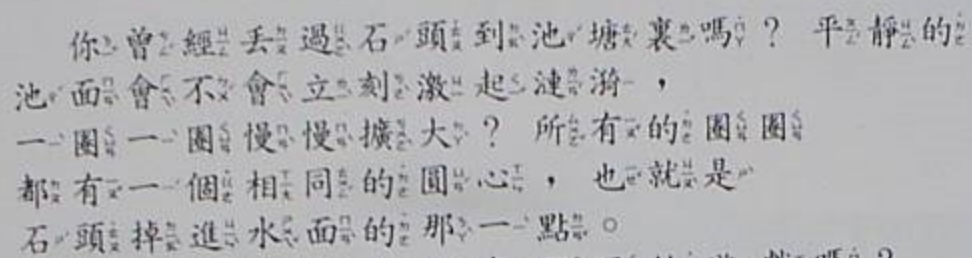 你曾經丟過石頭到池塘裏嗎？平靜的
池面會不會立刻激起漣漪，
一圈一圈慢慢擴大？所有的圈圈
都有一個相同的圓心，也就是
石頭掉進水面的那一點。
嗎？